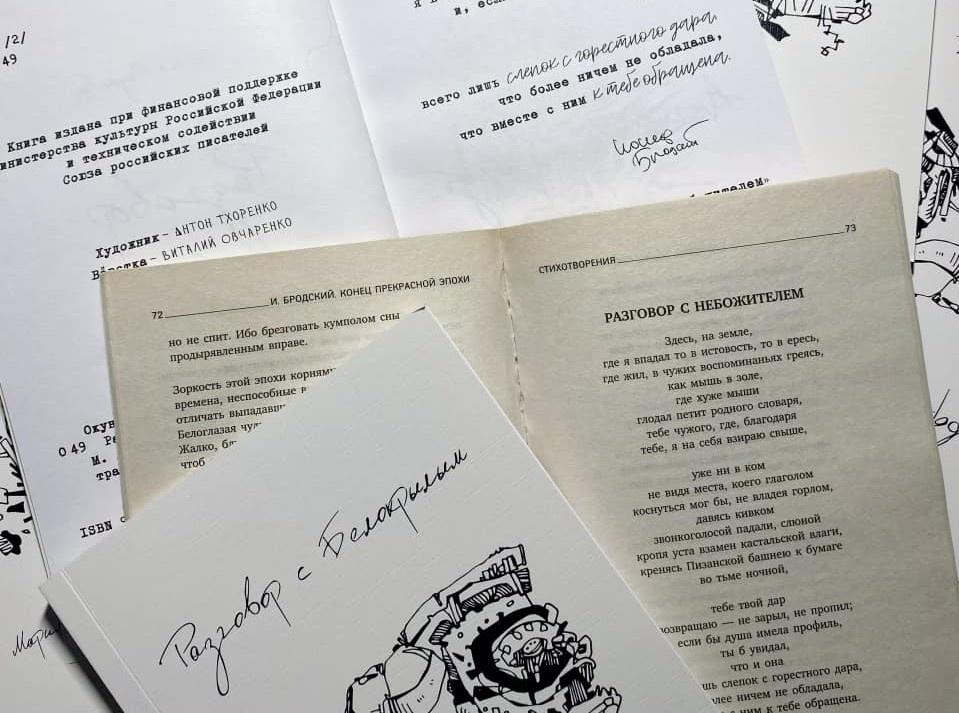 /2/
49
Книга издана при финансовой поддержке
Министерства культуры Российской Федерации
и техническом содействии
Союза российских писателей
Художник – АНТОН ТХОРЕНКО
Вёрстка – ВИТАЛИЙ ОВЧАРЕНКО
О 49
М.
ISBN
всего лишь слепок с горестного дара,
что более ничем не обладала,
что вместе с ним к тебе обращена.
Иосиф
Бродский
72 И. БРОДСКИЙ. КОНЕЦ ПРЕКРАСНОЙ ЭПОХИ
но не спит. Ибо брезговать кумполом сны
продырявленным вправе.
Зоркость этой эпохи корнями
времена, неспособные в
отличать выпавши
Белоглазая чудь
Жалко,
чтоб
СТИХОТВОРЕНИЯ 73
РАЗГОВОР С НЕБОЖИТЕЛЕМ
Здесь, на земле,
где я впадал то в истовость, то в ересь,
где жил, в чужих воспоминаньях греясь,
как мышь в золе,
где хуже мыши
глодал петит родного словаря,
тебе чужого, где, благодаря
тебе, я на себя взираю свыше,
уже ни в ком
не видя места, коего глаголом
коснуться мог бы, не владея горлом,
давясь кивком
звонкоголосой падали, слюной
кропя уста взамен кастальской влаги,
кренясь Пизанской башнею к бумаге
во тьме ночной,
тебе твой дар
возвращаю — не зарыл, не пропил;
если бы душа имела профиль,
ты б увидал,
что и она
слепок с горестного дара,
более ничем не обладала,
с ним к тебе обращена.
Разговор с Белокрылым